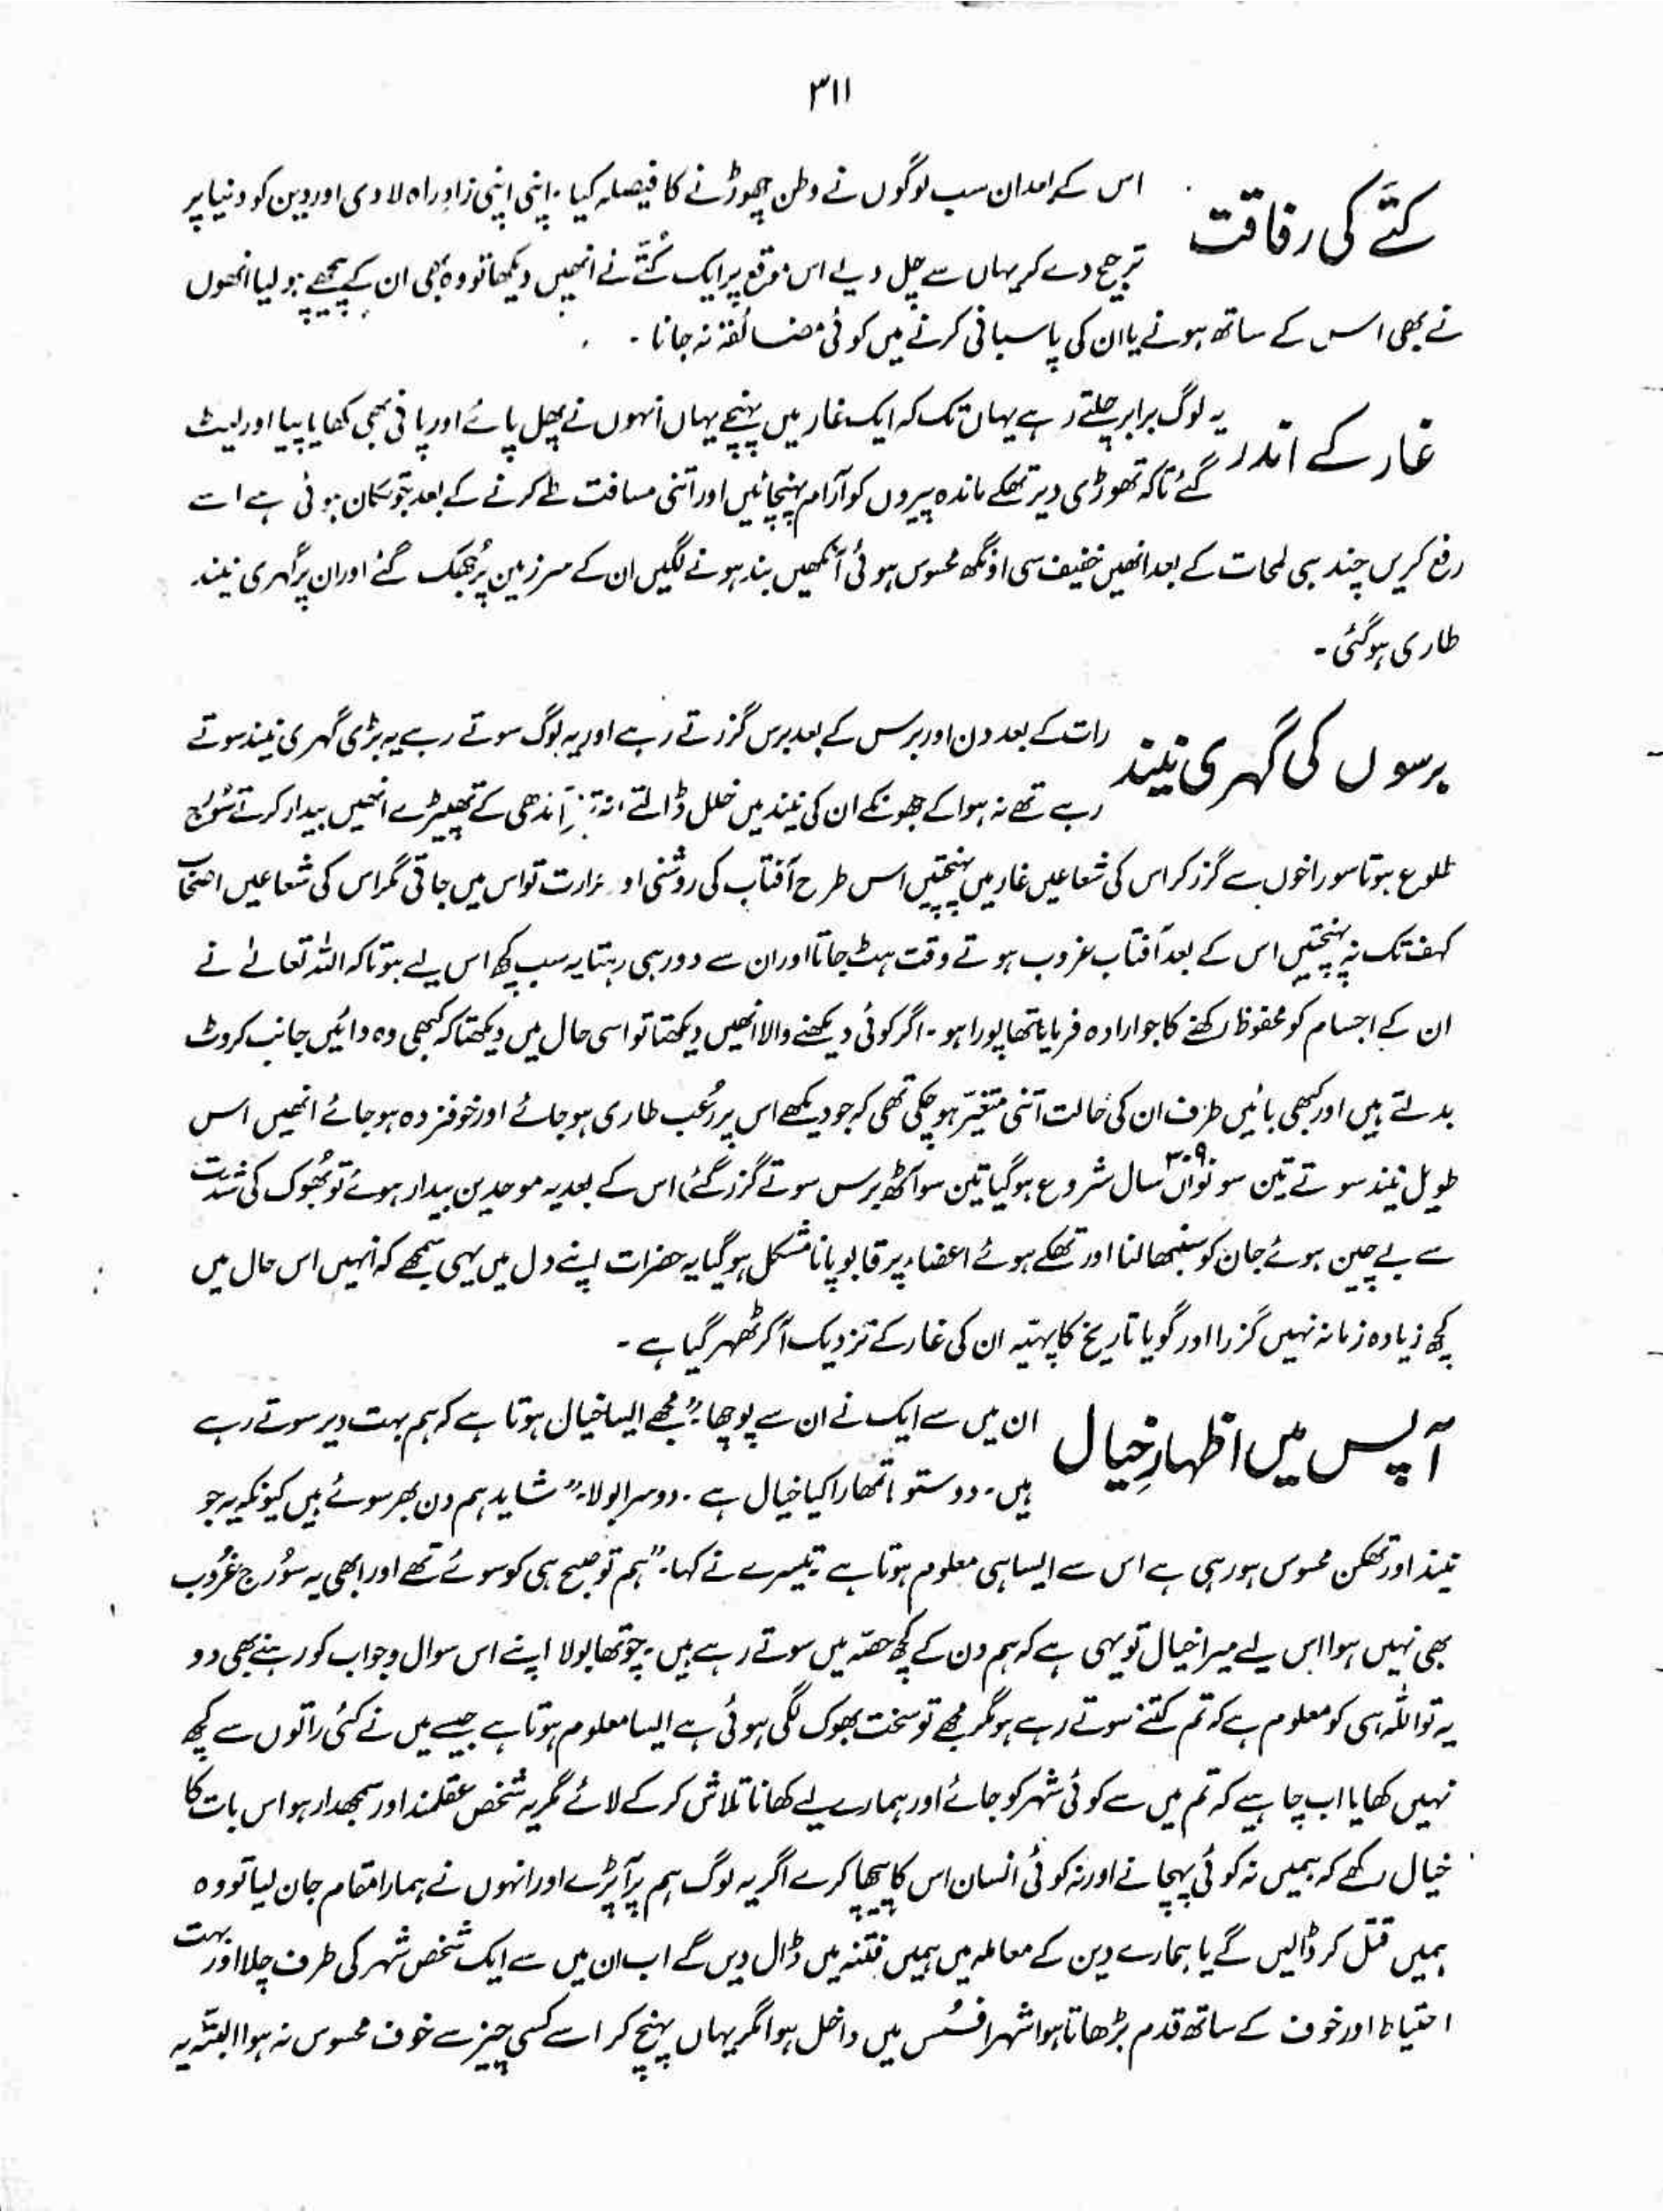 ۳۱۱
کتے کی رفاقت
اس کے بعد ان سب لوگوں نے وطن چھوڑنے کا فیصلہ کیا ۔ اپنی اپنی زادِ راہ لادی اور دین کو دنیا پر
ترجیح دے کر یہاں سے چل دیے اس موقع پر ایک کُتّے نے انھیں دیکھا تو وہ بھی ان کے پیچھے ہو لیا انھوں
نے بھی اس کے ساتھ ہونے یا ان کی پاسبانی کرنے میں کوئی مضائقہ نہ جانا ۔
غار کے اندر
یہ لوگ برابر چلتے رہے یہاں تک کہ ایک غار میں پہنچے یہاں انہوں نے پھل پائے اور پانی بھی کھایا پیا اور لیٹ
گئے تاکہ تھوڑی دیر تھکے ماندہ پیروں کو آرام پہنچائیں اور اتنی مسافت طے کرنے کے بعد جو تکان ہوئی ہے اسے
رفع کریں چند ہی لمحات کے بعد انھیں خفیف سی اونگھ محسوس ہوئی آنکھیں بند ہونے لگیں ان کے سر زمین پر جھک گئے اور ان پر گہری نیند
طاری ہو گئی ۔
برسوں کی گہری نیند
رات کے بعد دن اور برس کے بعد برس گزرتے رہے اور یہ لوگ سوتے رہے یہ بڑی گہری نیند سوتے
رہے تھے نہ ہوا کے جھونکے ان کی نیند میں خلل ڈالتے نہ تیز آندھی کے تھپیڑے انھیں بیدار کرتے سُورج
طلوع ہوتا سوراخوں سے گزر کر اس کی شعاعیں غار میں پہنچتیں اس طرح آفتاب کی روشنی اور حرارت تو اس میں جاتی مگر اس کی شعاعیں اصحاب
کہف تک نہ پہنچتیں اس کے بعد آفتاب غروب ہوتے وقت ہٹ جاتا اور ان سے دور ہی رہتا یہ سب کچھ اس لیے ہوتا کہ اللہ تعالےٰ نے
ان کے اجسام کو محفوظ رکھنے کا جو ارادہ فرمایا تھا پورا ہو ۔ اگر کوئی دیکھنے والا انھیں دیکھتا تو اسی حال میں دیکھتا کہ کبھی وہ دائیں جانب کروٹ
بدلتے ہیں اور کبھی بائیں طرف ان کی حالت اتنی متغیّر ہو چکی تھی کہ جو دیکھے اس پر رُعب طاری ہو جائے اور خوفزدہ ہو جائے انھیں اس
طویل نیند سوتے تین سو نواں ۳۰۹ سال شروع ہو گیا تین سو آٹھ برس سوتے گزر گئے اس کے بعد یہ موحدین بیدار ہوئے تو بُھوک کی شدّت
سے بے چین ہوئے جان کو سنبھالنا اور تھکے ہوئے اعضاء پر قابو پانا مشکل ہو گیا یہ حضرات اپنے دل میں یہی سمجھے کہ انہیں اس حال میں
کچھ زیادہ زمانہ نہیں گزرا اور گویا تاریخ کا پہیّہ ان کی غار کے نزدیک آ کر ٹھہر گیا ہے ۔
آپس میں اظہارِ خیال
ان میں سے ایک نے ان سے پوچھا: "مجھے ایسا خیال ہوتا ہے کہ ہم بہت دیر سوتے رہے
ہیں ۔ دوستو! تمھارا کیا خیال ہے ۔ دوسرا بولا: "شاید ہم دن بھر سوئے ہیں کیونکہ یہ جو
نیند اور تھکن محسوس ہو رہی ہے اس سے ایسا ہی معلوم ہوتا ہے ۔ تیسرے نے کہا: "ہم تو صبح ہی کو سوئے تھے اور ابھی یہ سُورج غرُوب
بھی نہیں ہوا اس لیے میرا خیال تو یہی ہے کہ ہم دن کے کچھ حصّہ میں سوتے رہے ہیں ۔ چوتھا بولا اپنے اس سوال و جواب کو رہنے بھی دو
یہ تو اللہ ہی کو معلوم ہے کہ تم کتنے سوتے رہے ہو مگر مجھے تو سخت بھوک لگی ہوئی ہے ایسا معلوم ہوتا ہے جیسے میں نے کئی راتوں سے کچھ
نہیں کھایا اب چاہیے کہ تم میں سے کوئی شہر کو جائے اور ہمارے لیے کھانا تلاش کر کے لائے مگر یہ شخص عقلمند اور سمجھدار ہو اس بات کا
خیال رکھے کہ ہمیں نہ کوئی پہچانے اور نہ کوئی انسان اس کا پیچھا کرے اگر یہ لوگ ہم پر آ پڑے اور انہوں نے ہمارا مقام جان لیا تو وہ
ہمیں قتل کر ڈالیں گے یا ہمارے دین کے معاملہ میں ہمیں فتنہ میں ڈال دیں گے اب ان میں سے ایک شخص شہر کی طرف چلا اور بہت
احتیاط اور خوف کے ساتھ قدم بڑھاتا ہوا شہر افسُس میں داخل ہوا مگر یہاں پہنچ کر اسے کسی چیز سے خوف محسوس نہ ہوا البتّہ یہ